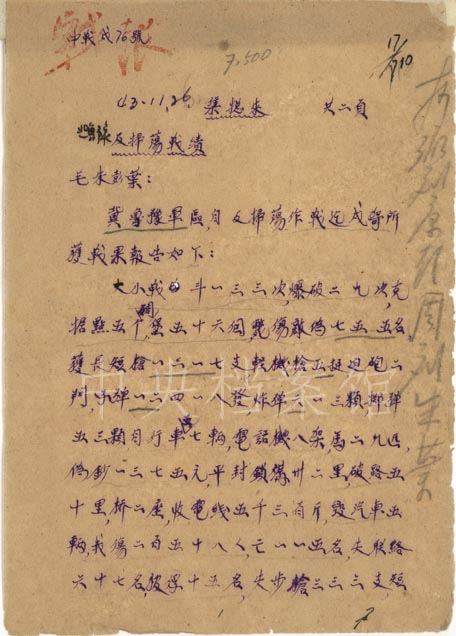 戰报
中戰戌76號
7,500
43.11.26.
共二頁
反掃蕩戰績
毛朱彭葉：
冀魯豫軍區自反掃蕩作戰迄戌哿所
獲戰果報告如下：
大小戰斗一三三次,爆破二九次,克
據點五个,堡五十六個,斃傷敵偽七五五名
獲長短槍一六一七支輕機槍五挺迫砲二
門,小弹一六四一八發炸弹三一三顆擲弹
五三顆自行車七輛,電話機八架,馬二九匹,
偽鈔一三七五元,平封鎖溝卅二里,破路五
十里,桥二座,收電线五千三百斤,毁汽車五
輌,我傷二百五十八人,亡一一五名,失联络
六十七名,被俘十五名,失步槍三三三支,短
中央档案馆